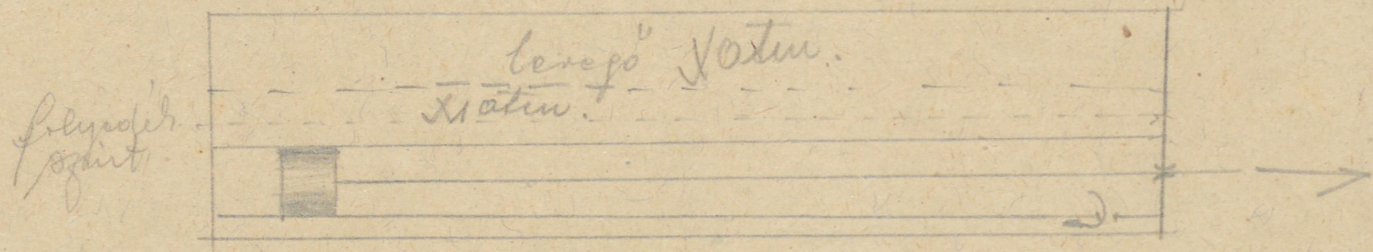 levegő X atm.
X1 atm.
folyadék
szint